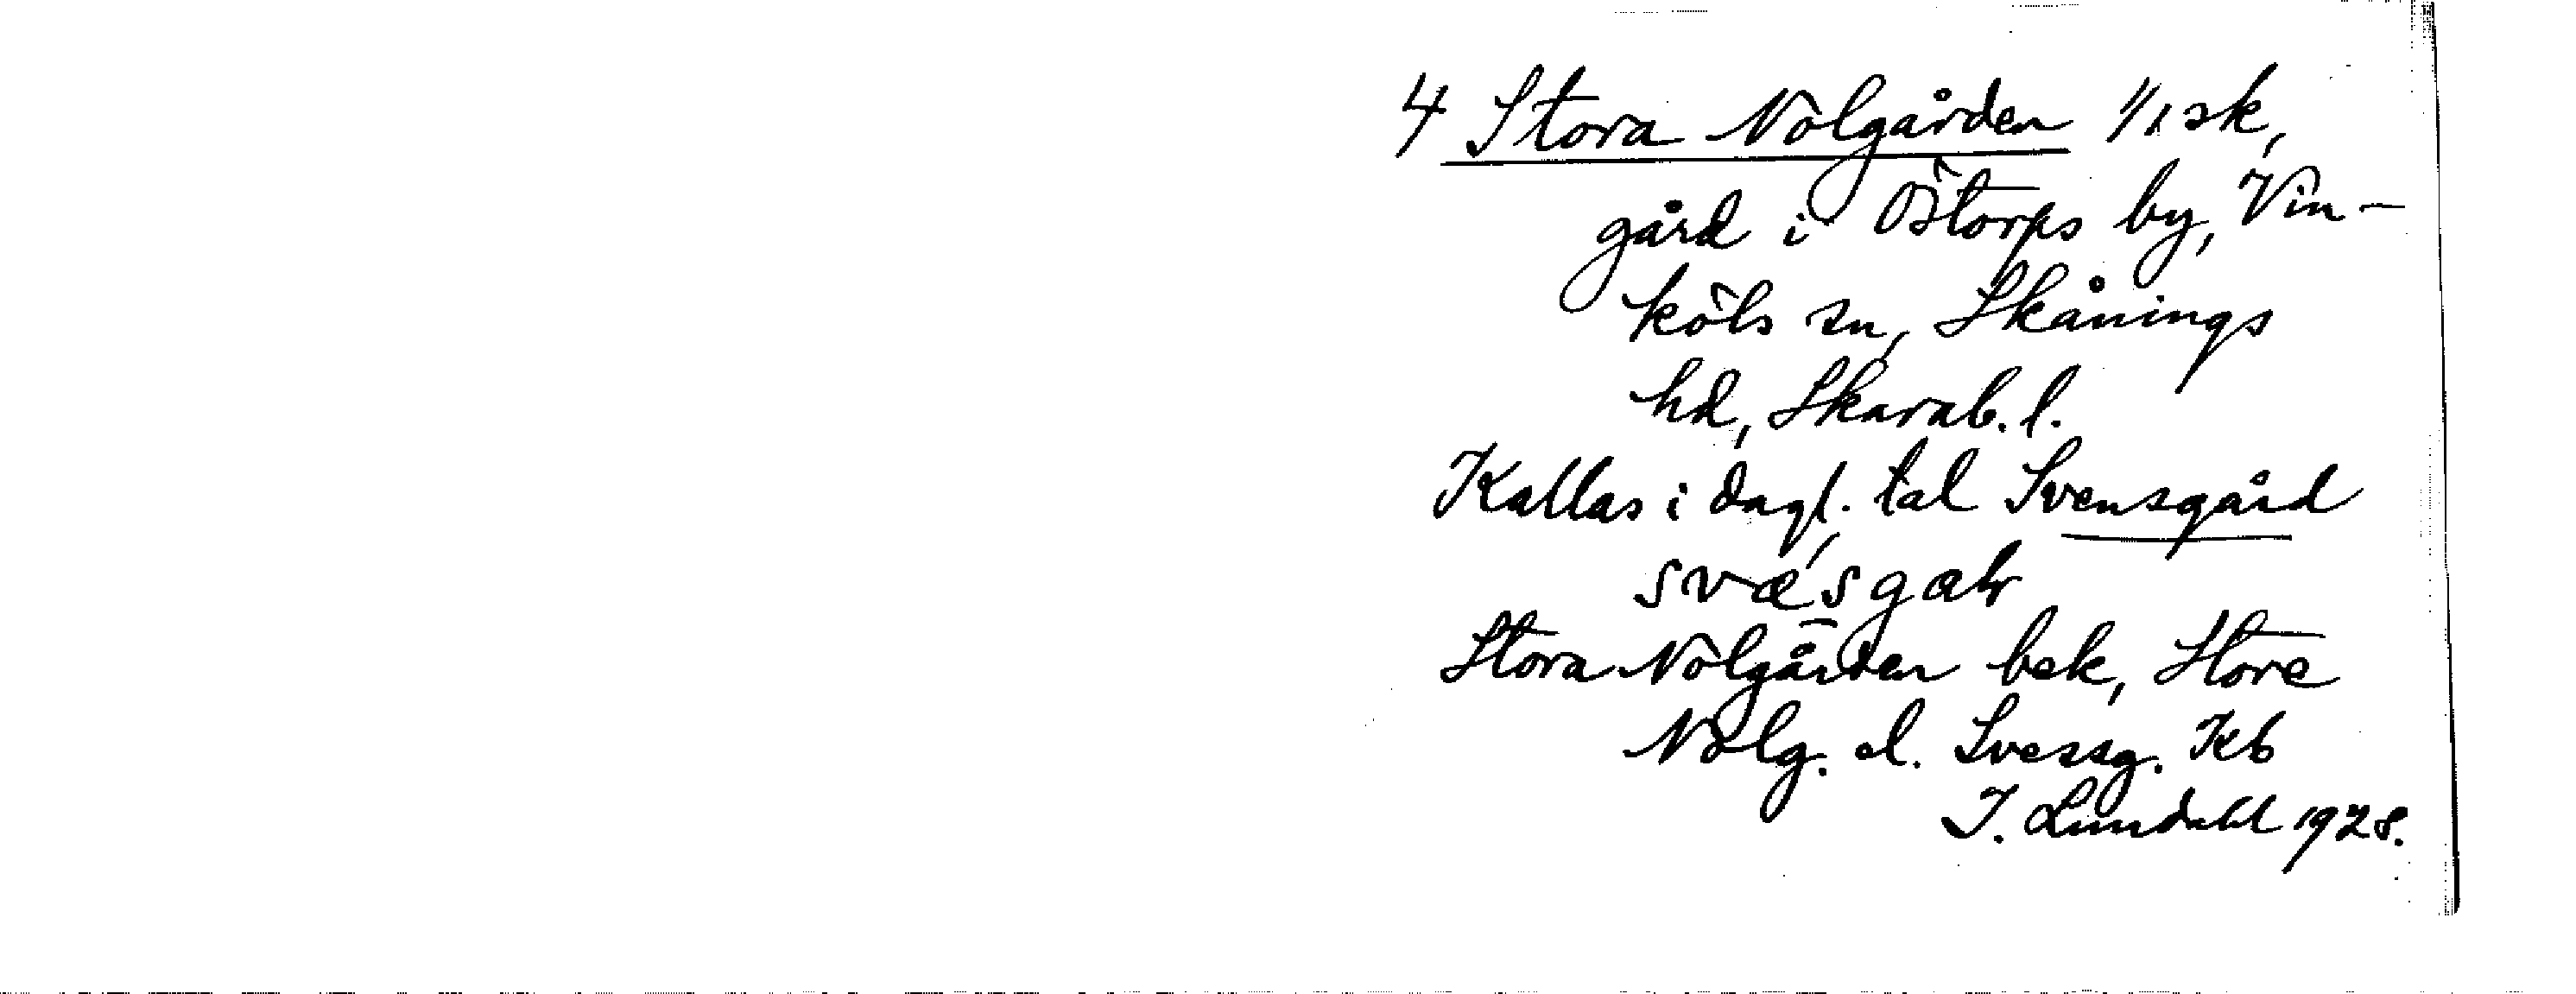 4 Stora Nolgården 1/1 sk,
gård i Östorps by, Vin-
köls sn, Skånings
hd, Skarab. l.
Kallas i dagl. tal Svensgård
Stora Nolgården bek, Store
Nolg. el. Svessg. Kb
I. Lundahl 1928.